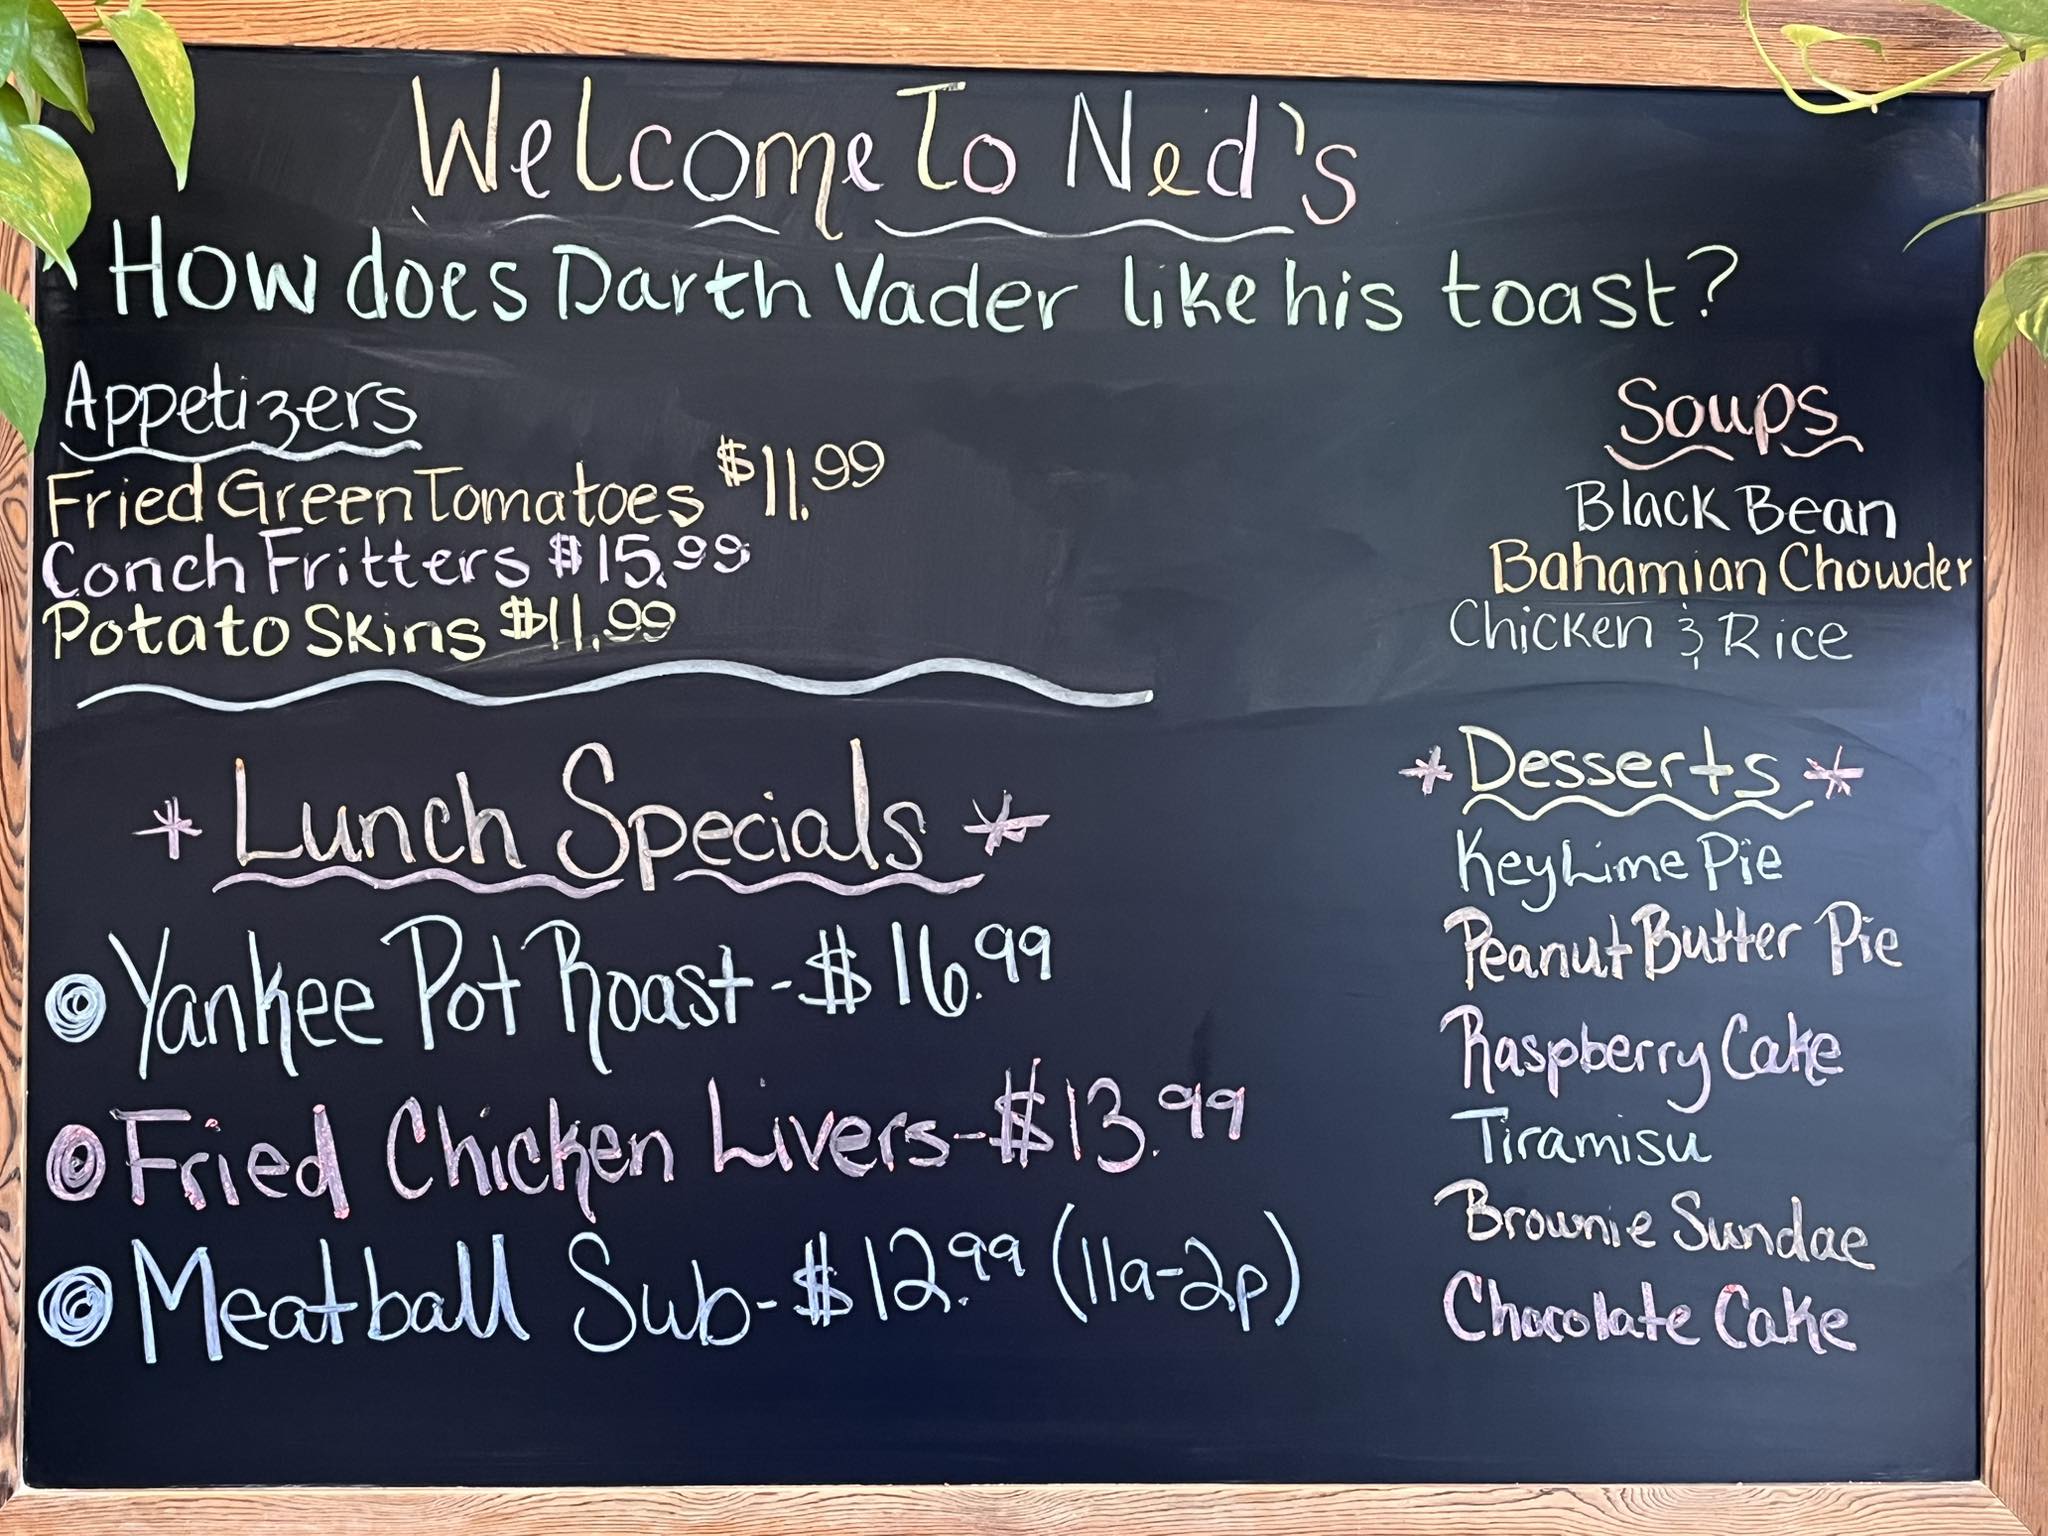 Welcome To Ned's
How does Darth Vader like his toast?
Appetizers
Fried Green Tomatoes $11.99
Conch Fritters $15.99
Potato Skins $11.99
Soups
Black Bean
Bahamian Chowder
Chicken & Rice
* Lunch Specials *
Yankee Pot Roast - $16.99
Fried Chicken Livers - $13.99
Meatball Sub - $12.99 (11a-2p)
* Desserts *
Key Lime Pie
Peanut Butter Pie
Raspberry Cake
Tiramisu
Brownie Sundae
Chocolate Cake